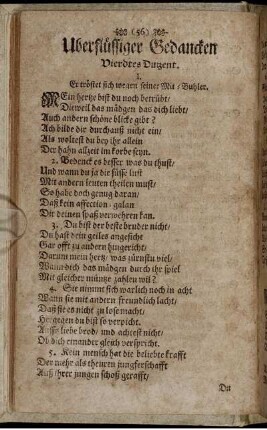 (56)
Uberflüssiger Gedancken
Vierdtes Dutzent.
1.
Er tröstet sich wegen seiner Mit-Buhler.
MEin hertze bist du noch betrübt/
Dieweil das mädgen das dich liebt/
Auch andern schöne blicke gibt?
Ach bilde dir durchauß nicht ein/
Als woltest du bey ihr allein
Der hahn allzeit im korbe seyn.
2. Bedenck es besser was du thust/
Und wann du ja die süsse lust
Mit andern leuten theilen must/
So habe doch genug daran/
Daß kein affection-galan
Dir deinen spaß verwehren kan.
3. Du bist der beste bruder nicht/
Du hast dein geiles angesicht
Gar offt zu andern hingericht/
Darum mein hertz, was zürnstu viel/
Wann dich das mädgen durch ihr spiel
Mit gleicher müntze zahlen wil?
4. Sie nimmt sich warlich noch in acht
Wann sie mit andern freundlich lacht/
Daß sie es nicht zu lose macht/
Hergegen du bist so verpicht.
Auff liebe brod/ und achtest nicht/
Ob dich einander gleich verspricht.
5. Kein mensch hat die beliebte krafft
Der mehr als theuren jungferschafft
Auß ihrer jungen schoß gerafft/
Du